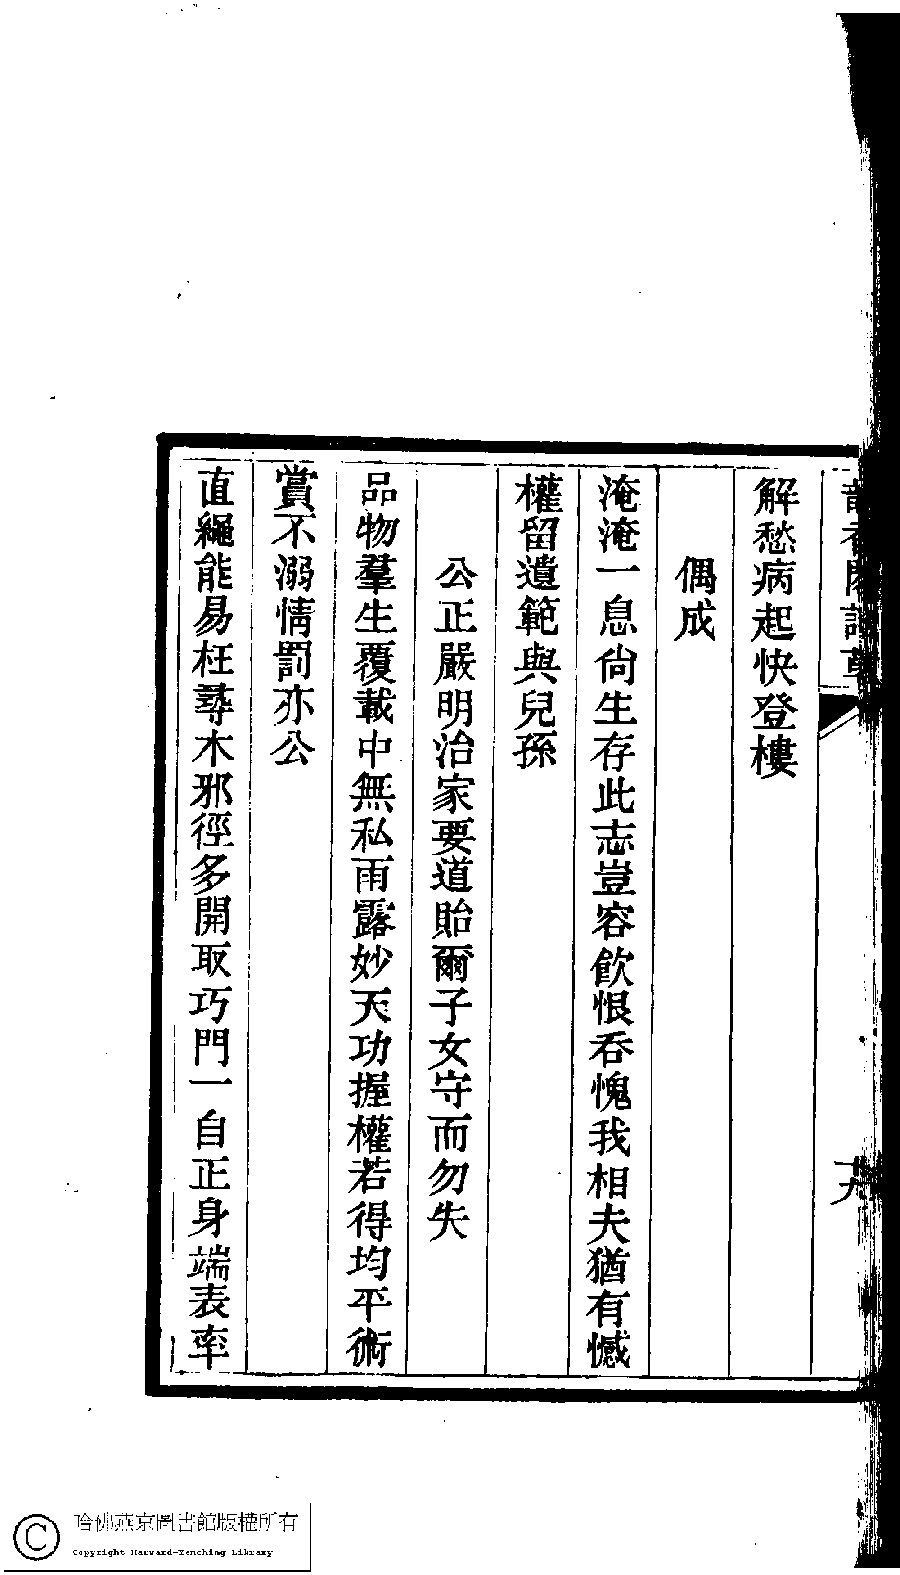 解愁病起快登樓
偶成
淹淹一息尙生存此志豈容飮恨吞愧我相夫猶有憾
權留遺範與兒孫
公正嚴明治家要道貽爾子女守而勿失
品物羣生覆載中無私雨露妙天功握權若得均平術
賞不溺情罰亦公
直繩能易枉尋木邪徑多開取巧門一自正身端表率
哈佛燕京圖書館版權所有
Copyright Harvard-Yenching Library